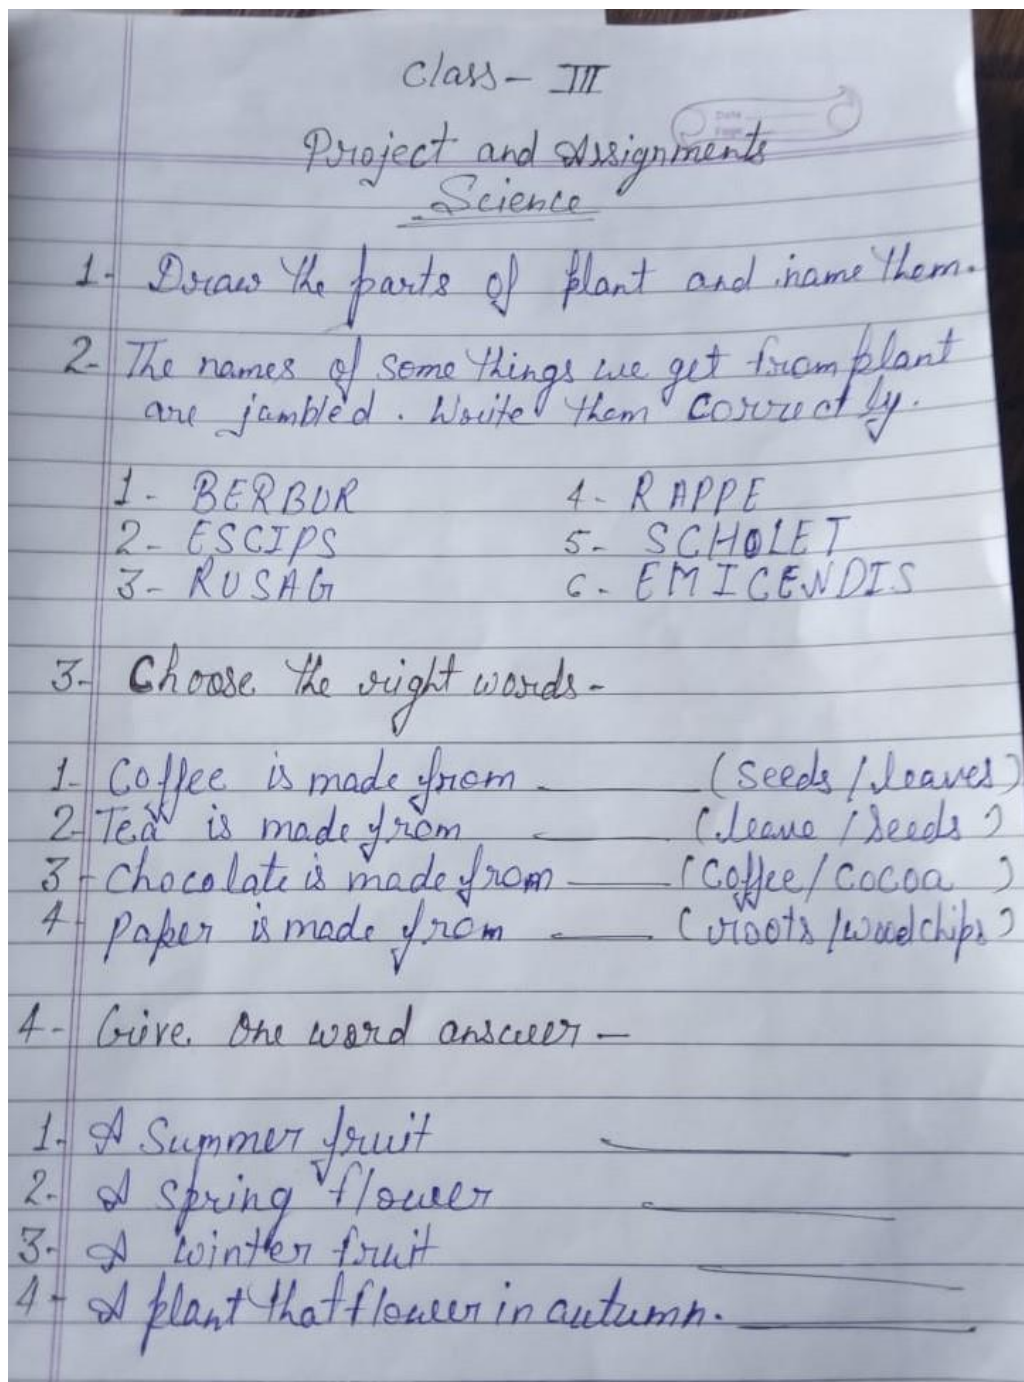 Date
Page
Class - III
Project and Assignments
Science
1- Draw the parts of plant and name them.
2- The names of some things we get from plant
are jambled. Write them correctly.
1- BERBUR
2- ESCIPS
3- RUSAG
4- RAPPE
5- SCHOLET
6- EMICENDIS
3- Choose the right words-
1- Coffee is made from - ______ (seeds/leaves)
2- Tea is made from ______ (leave/seeds)
3- Chocolate is made from ______ (Coffee/cocoa)
4- paper is made from ______ (roots/woodchips)
4- Give One word answer -
1- A Summer fruit ______
2- A spring flower ______
3- A winter fruit ______
4- A plant that flower in autumn. ______